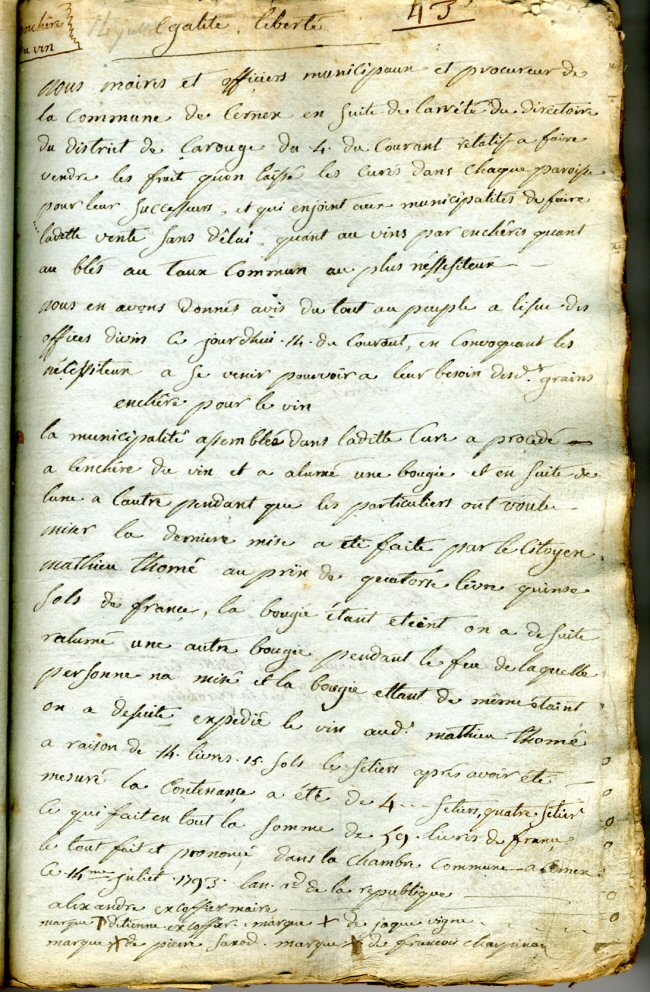 enchere
du vin
Egalité liberté
43
nous maires et officiers municipaux et procureur de
la Commune de Cernex en Suite de larrété du directoire
du district de Carouge du 4. du Courant relatif a faire
vendre les frait qu'on laissé les Cures dans Chaque paroisse
pour leur Successeurs, et qui enjoint aux municipalités de faire
laditte vente Sans délai, quant au vins par enchéris quant
au blés au taux Commun au plus nessesiteux
nous en avons donnés avis du tout au peuple a lissue des
offices divin Ce jourdhui .14. du Courant, en Convoquant les
nécessiteux a Se venir pourvoir a leur besoin desd.ts grains
enchère pour le vin
la municipalité assemblés dans laditte Cure a procédé
a lenchere du vin et a alumé une bougie et en Suite de
lune a lautre pendant que les particuliers ont voulu
miser la derniere mise a été faite par le Citoyen
mathieu thomé au prix de quatorse livre quinse
Sols de france, la bougie étant eteint on a de suite
ralumé une autre bougie pendant le feu de laquelle
personne na misé et la bougie ettant de même étaint
on a desuite expédié le vin aud.t mathieu thomé
a raison de 14. livres .15. Sols le Setiers après avoir été
mesuré la Contenance a été de 4... Setiers, quatre Setier
Ce qui fait en tout la Somme de 59. livres de france
le tout fait et prononcé dans la Chambre Commune a Cernex
Ce 14me juliet .1793. lan .2d de la republique
alexandre excoffier maire
marque détienne excoffier . marque + de jaque vigne
marque + de pierre Sarod . marque + de francois